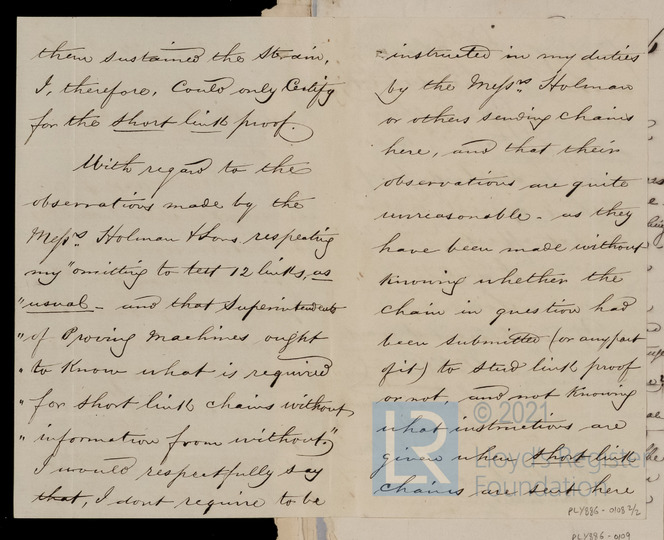 them sustained the strain,
I, therefore, could only Certify
for the short link proof.
With regard to the
observations made by the
Messrs. Holman & Sons respecting
my "omitting to test 12 links, as
"usual - and that Superintendents
"of Proving Machines ought
"to know what is required
"for short link chains without
"information from without."
I would respectfully say
that, I dont require to be
instructed in my duties
by the Messrs. Holman
or others sending chains
here, and that their
observations are quite
unreasonable - as they
have been made without
knowing whether the
chain in question had
been submitted (or any part
of it) to stud link proof
or not, and not knowing
what instructions are
given when short link
chains are sent here
LR
© 2021
Lloyd's Register
Foundation
PLY886-0108 2/2
PLY886-0109